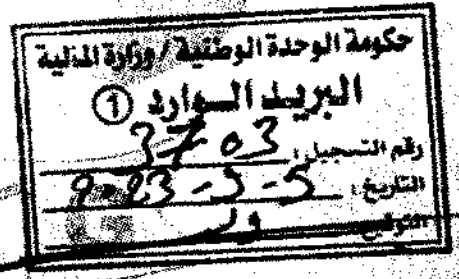 حكومة الوحدة الوطنية / وزارة المالية
البريد الوارد ①
رقم التسجيل : 3703
التاريخ : 5-3-2023
التوقيع :